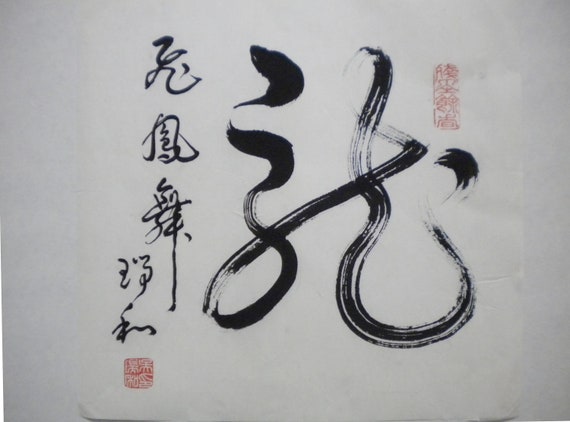 龍
飛鳳舞
瑞和